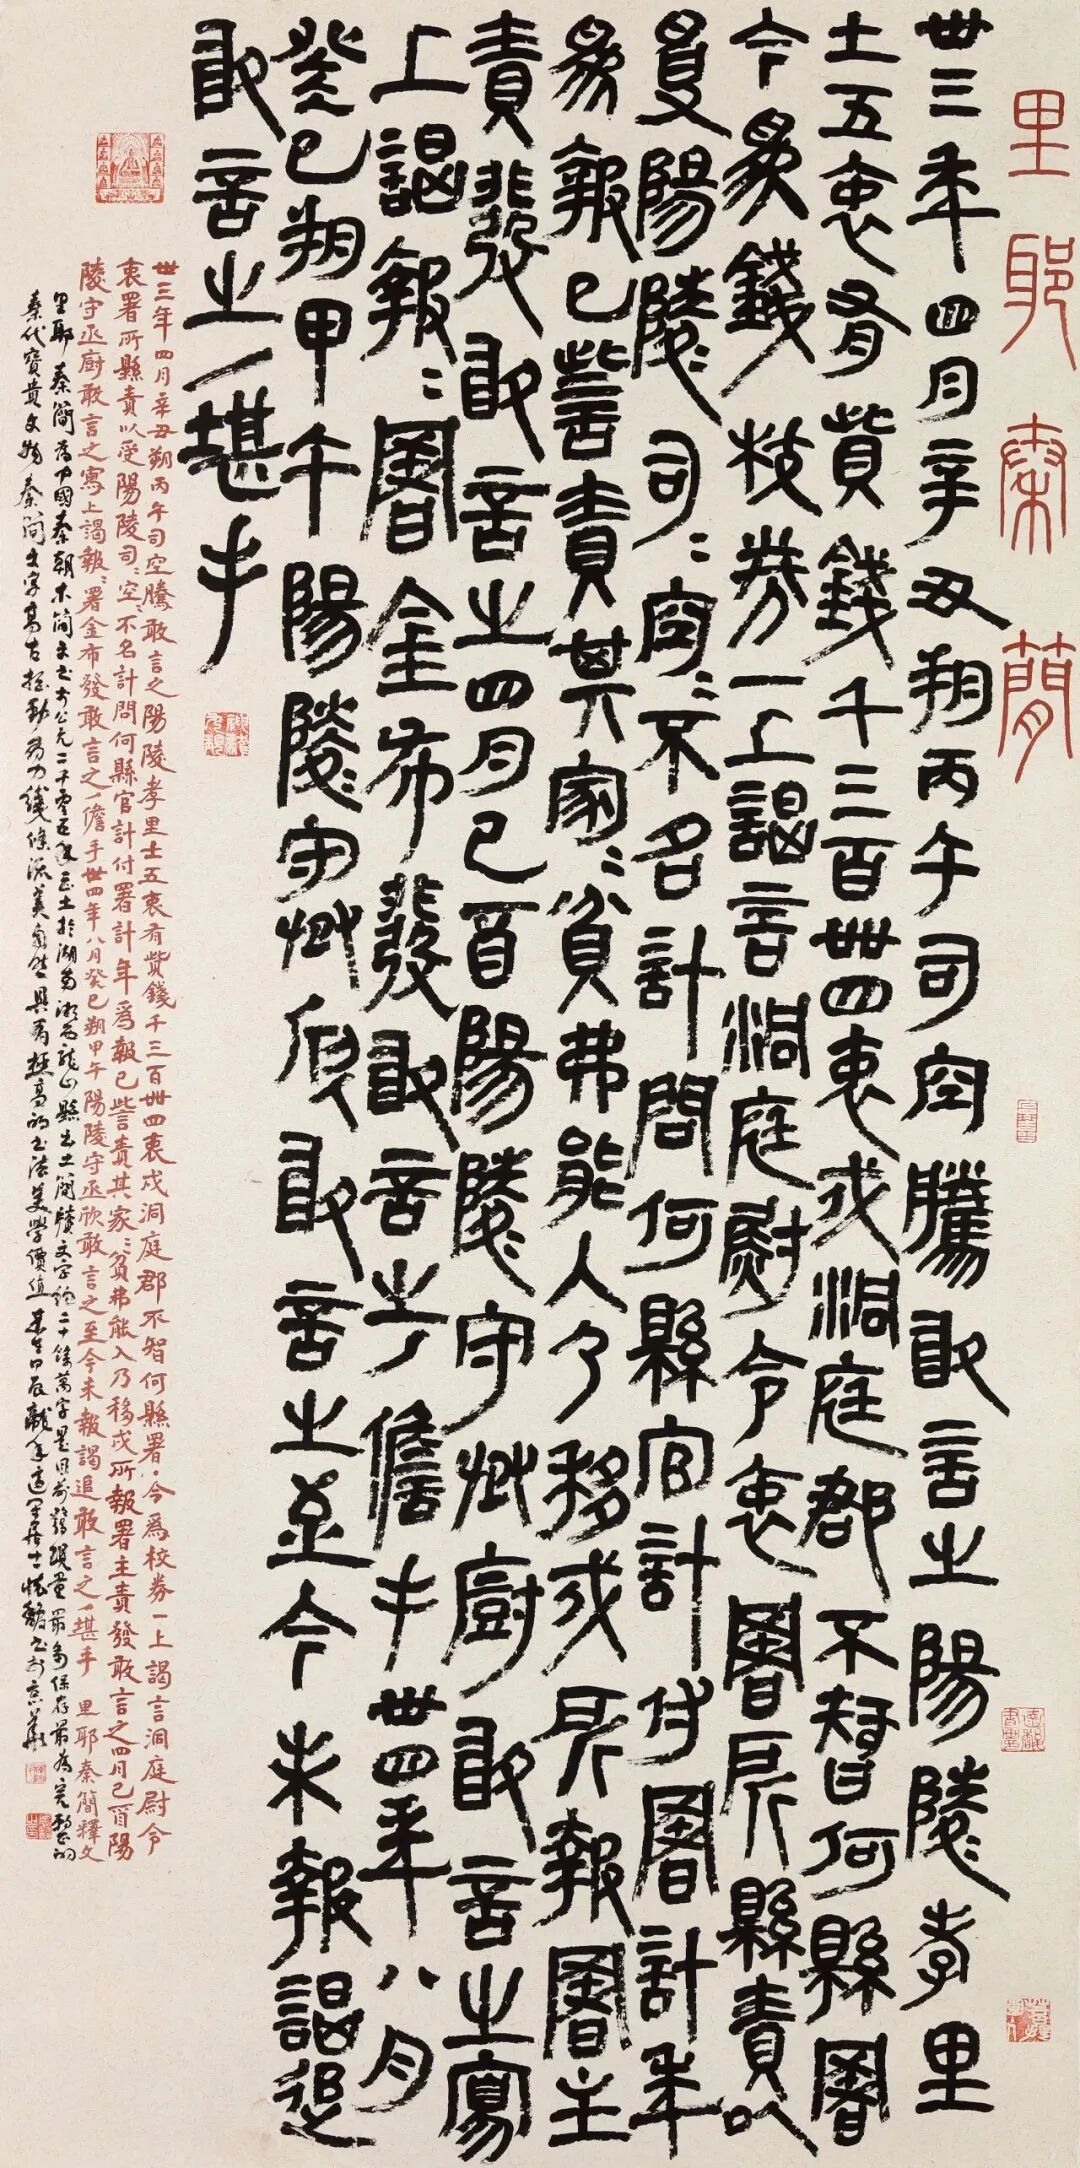 里耶秦簡
卅三年四月辛丑朔丙午司空騰敢言之陽陵孝里
士五衷有貲錢千三百卌四衷戍洞庭郡不智何縣署
今為錢校券一上謁言洞庭尉令衷署所縣責以
受陽陵=司=空=不名計問何縣官計付署計年
為報已訾責其家=貧弗能入乃移戍所報署主
責發敢言之四月己酉陽陵守丞廚敢言之寫
上謁報=署金布發敢言之/儋手卅四年八月
癸巳朔甲午陽陵守丞欣敢言之至今未報謁追
敢言之/堪手
卅三年四月辛丑朔丙午司空騰敢言之陽陵孝里士五衷有貲錢千三百卌四衷戍洞庭郡不智何縣署·今為校券一上謁言洞庭尉令
衷署所縣責以受陽陵司=空=不名計問何縣官計付署計年為報已訾責其家=貧弗能入乃移戍所報署主責發敢言之四月己酉陽
陵守丞廚敢言之寫上謁報=署金布發敢言之/儋手卅四年八月癸巳朔甲午陽陵守丞欣敢言之至今未報謁追敢言之/堪手 里耶秦簡釋文
里耶秦簡為中國秦朝木簡
秦代寶貴文物秦簡文字高古